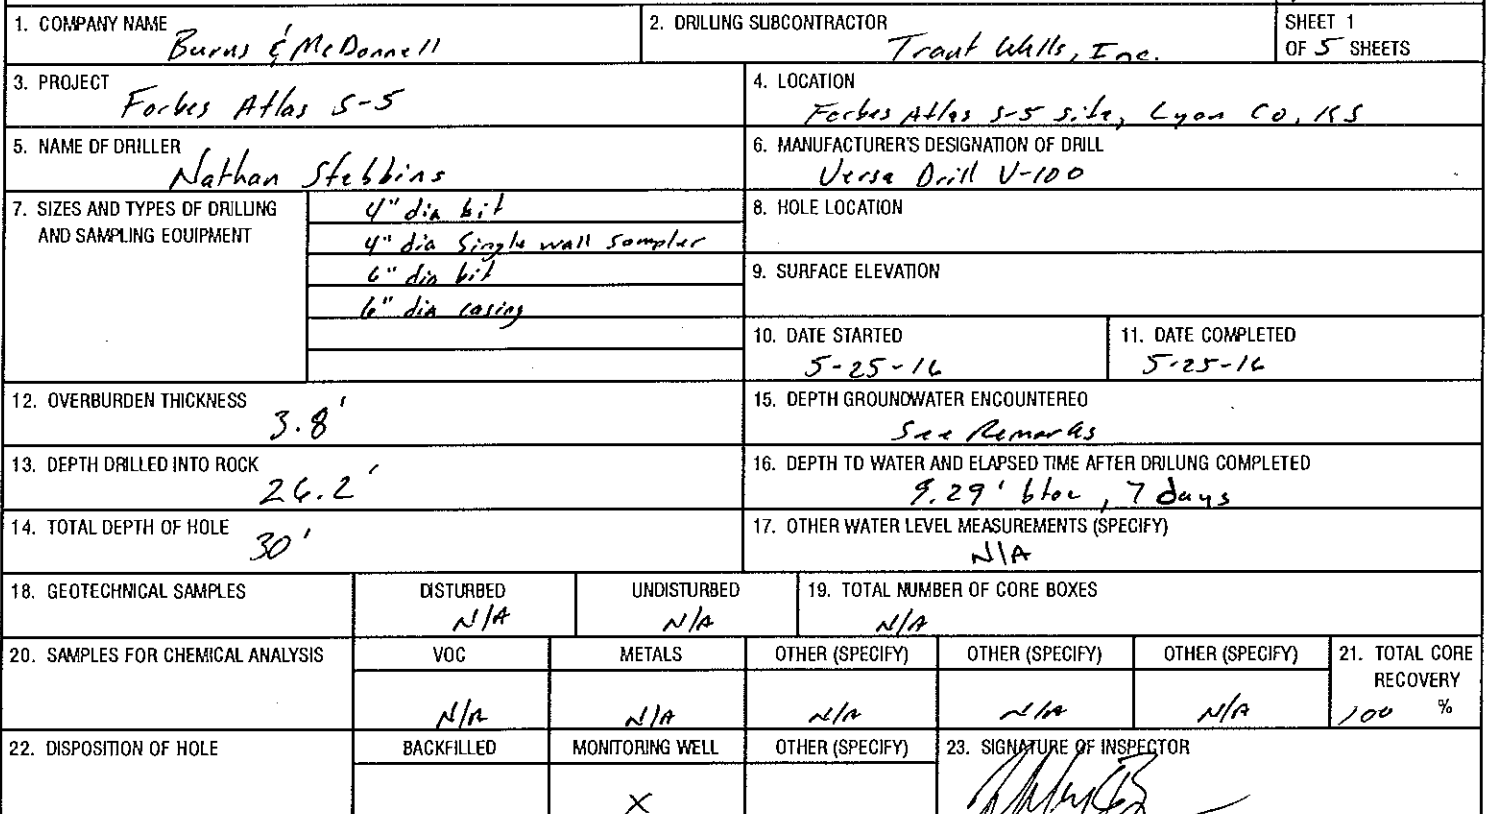 1. COMPANY NAME Burns & McDonnell
2. DRILLING SUBCONTRACTOR Traut Wells, Inc.
SHEET 1
OF 5 SHEETS
3. PROJECT Forbes Atlas S-5
4. LOCATION
Forbes Atlas S-5 Site, Lyon Co, KS
5. NAME OF DRILLER
Nathan Stebbins
6. MANUFACTURER'S DESIGNATION OF DRILL
Versa Drill V-100
7. SIZES AND TYPES OF DRILLING
AND SAMPLING EQUIPMENT
4" dia bit
4" dia Single wall Sampler
6" dia bit
6" dia casing
8. HOLE LOCATION
9. SURFACE ELEVATION
10. DATE STARTED
5-25-16
11. DATE COMPLETED
5-25-16
12. OVERBURDEN THICKNESS
3.8'
15. DEPTH GROUNDWATER ENCOUNTERED
See Remarks
13. DEPTH DRILLED INTO ROCK
26.2'
16. DEPTH TO WATER AND ELAPSED TIME AFTER DRILLING COMPLETED
9.29' btoc, 7 days
14. TOTAL DEPTH OF HOLE 30'
17. OTHER WATER LEVEL MEASUREMENTS (SPECIFY)
N/A
18. GEOTECHNICAL SAMPLES
DISTURBED
N/A
UNDISTURBED
N/A
19. TOTAL NUMBER OF CORE BOXES
N/A
20. SAMPLES FOR CHEMICAL ANALYSIS
VOC
METALS
OTHER (SPECIFY)
OTHER (SPECIFY)
OTHER (SPECIFY)
21. TOTAL CORE
RECOVERY
100 %
N/A
N/A
N/A
N/A
N/A
22. DISPOSITION OF HOLE
BACKFILLED
MONITORING WELL
X
OTHER (SPECIFY)
23. SIGNATURE OF INSPECTOR